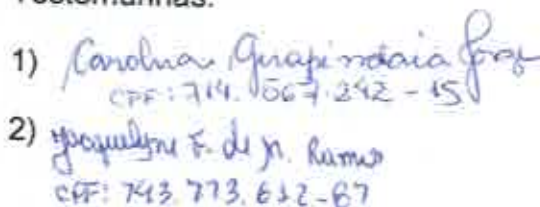 Testemunhas:
1) Carolina Guapindaia Jorge
CPF: 714.067.242-15
2) Jacquelyne F. de M. Ramos
CPF: 743.773.612-67